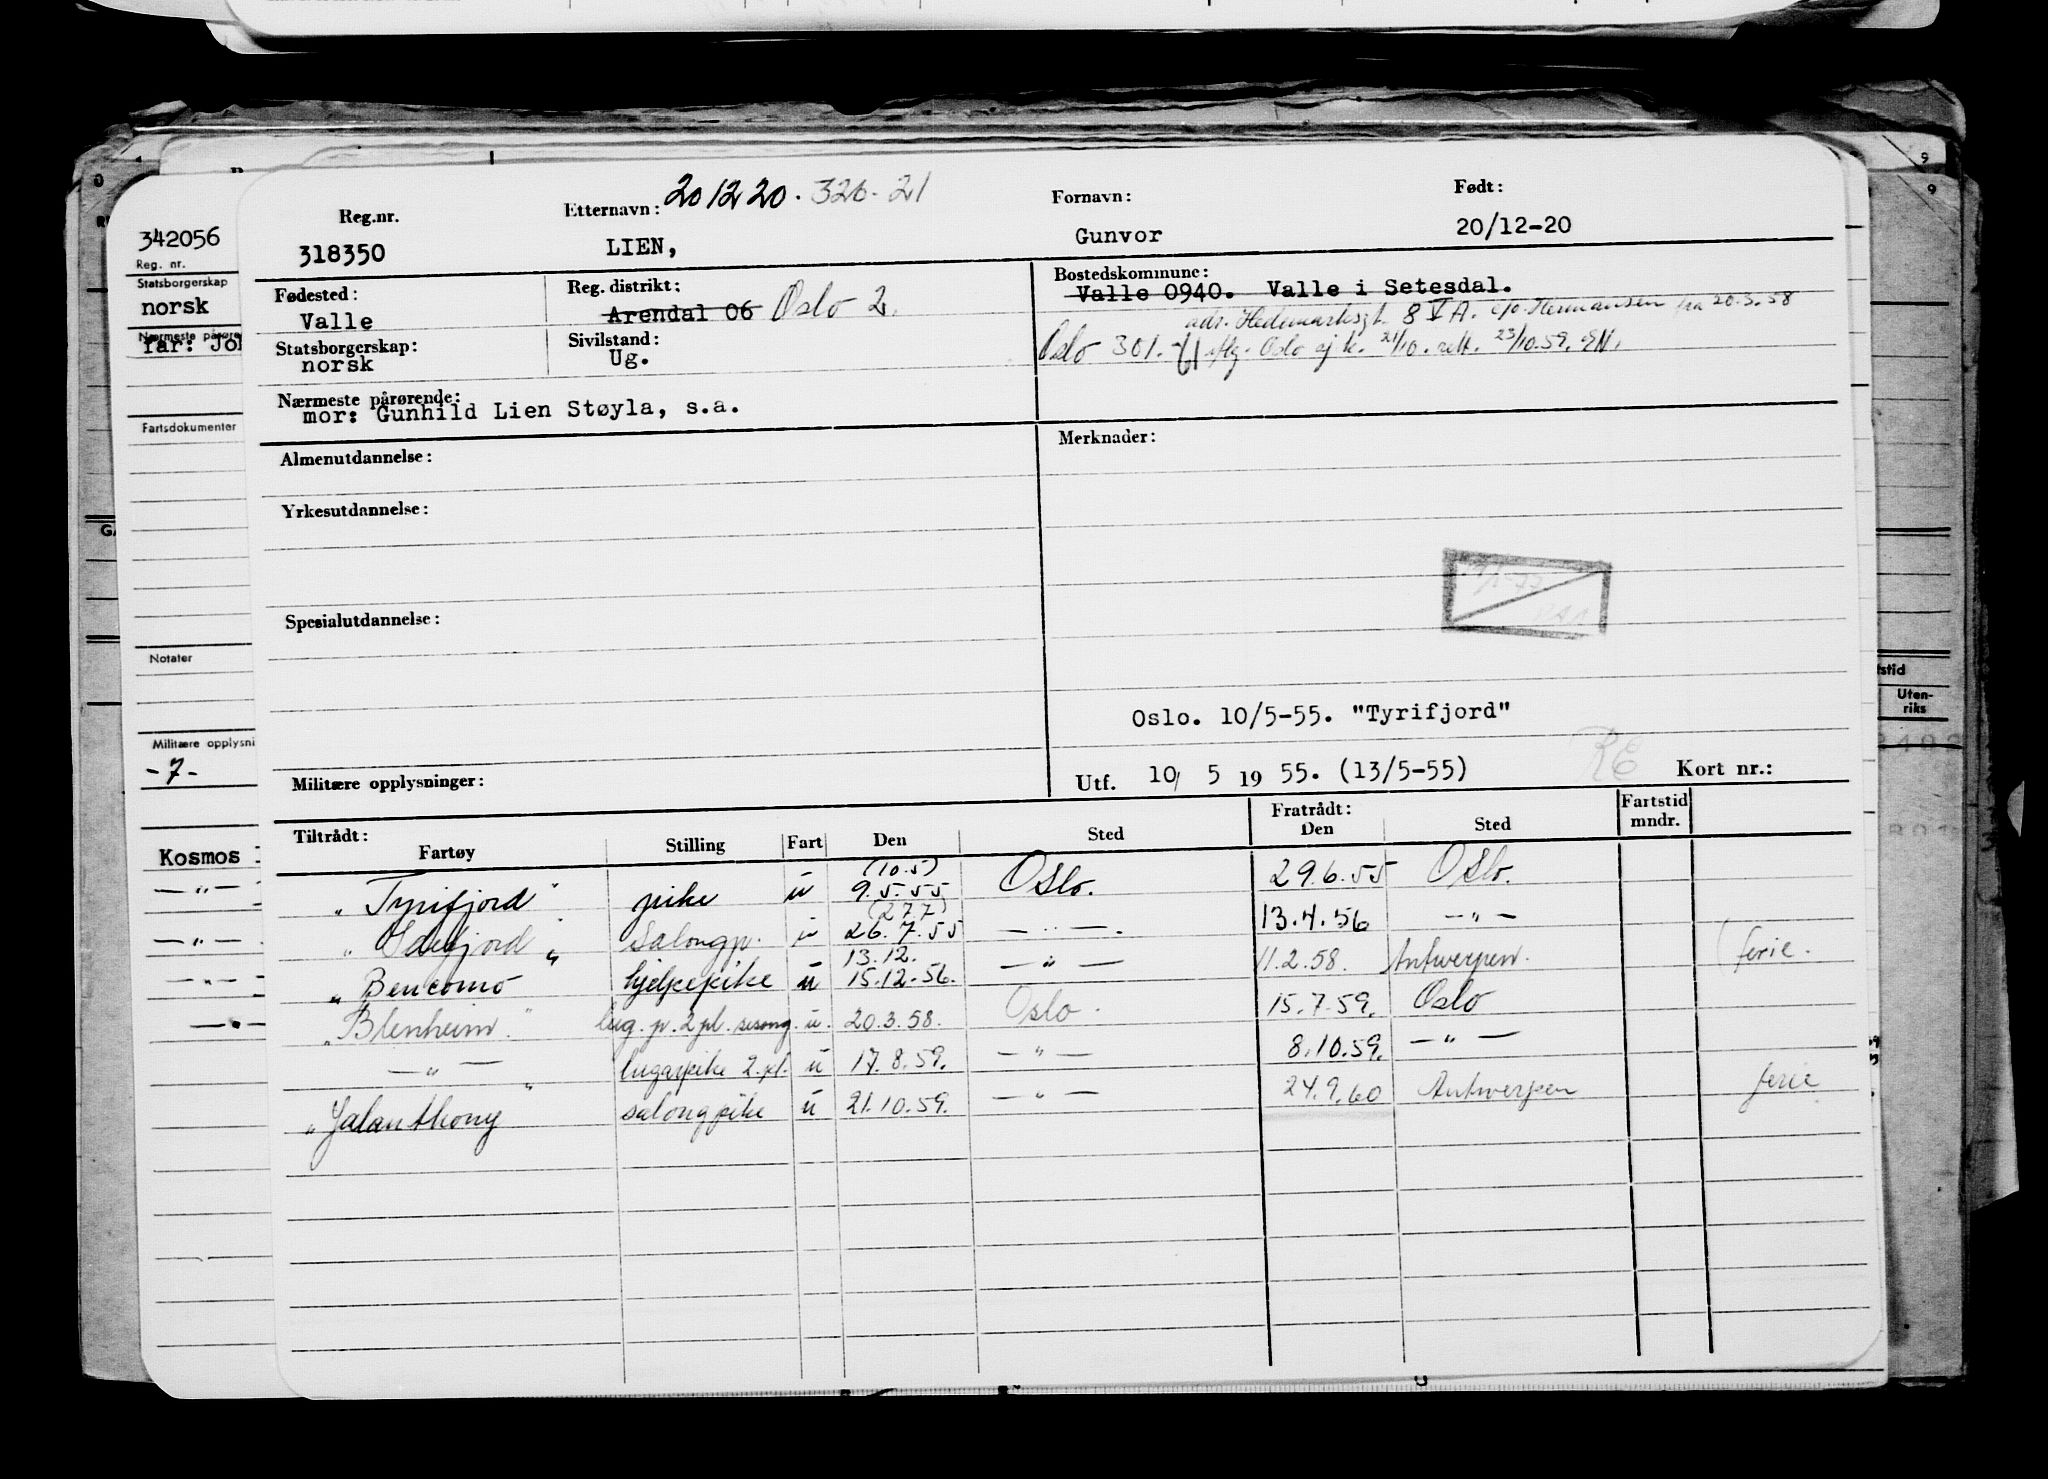 20 12 20. 326-21
Reg.nr. Etternavn: Fornavn: Født:
318350 LIEN, Gunvor 20/12-20
Fødested: Reg. distrikt: Bostedskommune:
Valle Arendal 06 Oslo 2. Valle 0940. Valle i Setesdal.
adr. Hedemarksgt. 8 V A. c/o Hermansen fra 20.3.58
Statsborgerskap: Sivilstand:
norsk Ug. Oslo 301. Oslo 21/10. 23/10.59.
Nærmeste pårørende:
mor: Gunhild Lien Støyla, s.a.
Almenutdannelse: Merknader:
Yrkesutdannelse:
Spesialutdannelse:
Oslo. 10/5-55. "Tyrifjord"
Militære opplysninger: Utf. 10/ 5 19 55. (13/5-55) RE Kort nr.:
Tiltrådt: Fratrådt: Fartstid
Fartøy Stilling Fart Den Sted Den Sted mndr.
(10.5)
"Tyrifjord" pike u 9.5.55 Oslo. 29.6.55 Oslo.
(27.7)
"Idefjord" salongp. u 26.7.55 — " —. 13.4.56 — " —
13.12.
"Bencomo" hjelpepike u 15.12.56. — " — 11.2.58. Antwerpen. ferie.
"Blenheim" lug.p. 2 pl. sesong. u. 20.3.58. Oslo. 15.7.59. Oslo
— " — lugarpike 2.pl. u 17.8.59. — " — 8.10.59. — " —
"Jalanthony" salongpike u 21.10.59. — " — 24.9.60 Antwerpen ferie
342056
Reg. nr.
Statsborgerskap
norsk
Nærmeste pårøre
far: Jo
Fartsdokumenter
Notater
Militære opplysni
-7-
Kosmos
— " —
— " —
— " —
— " —
9
9
tstid
Uten-
riks